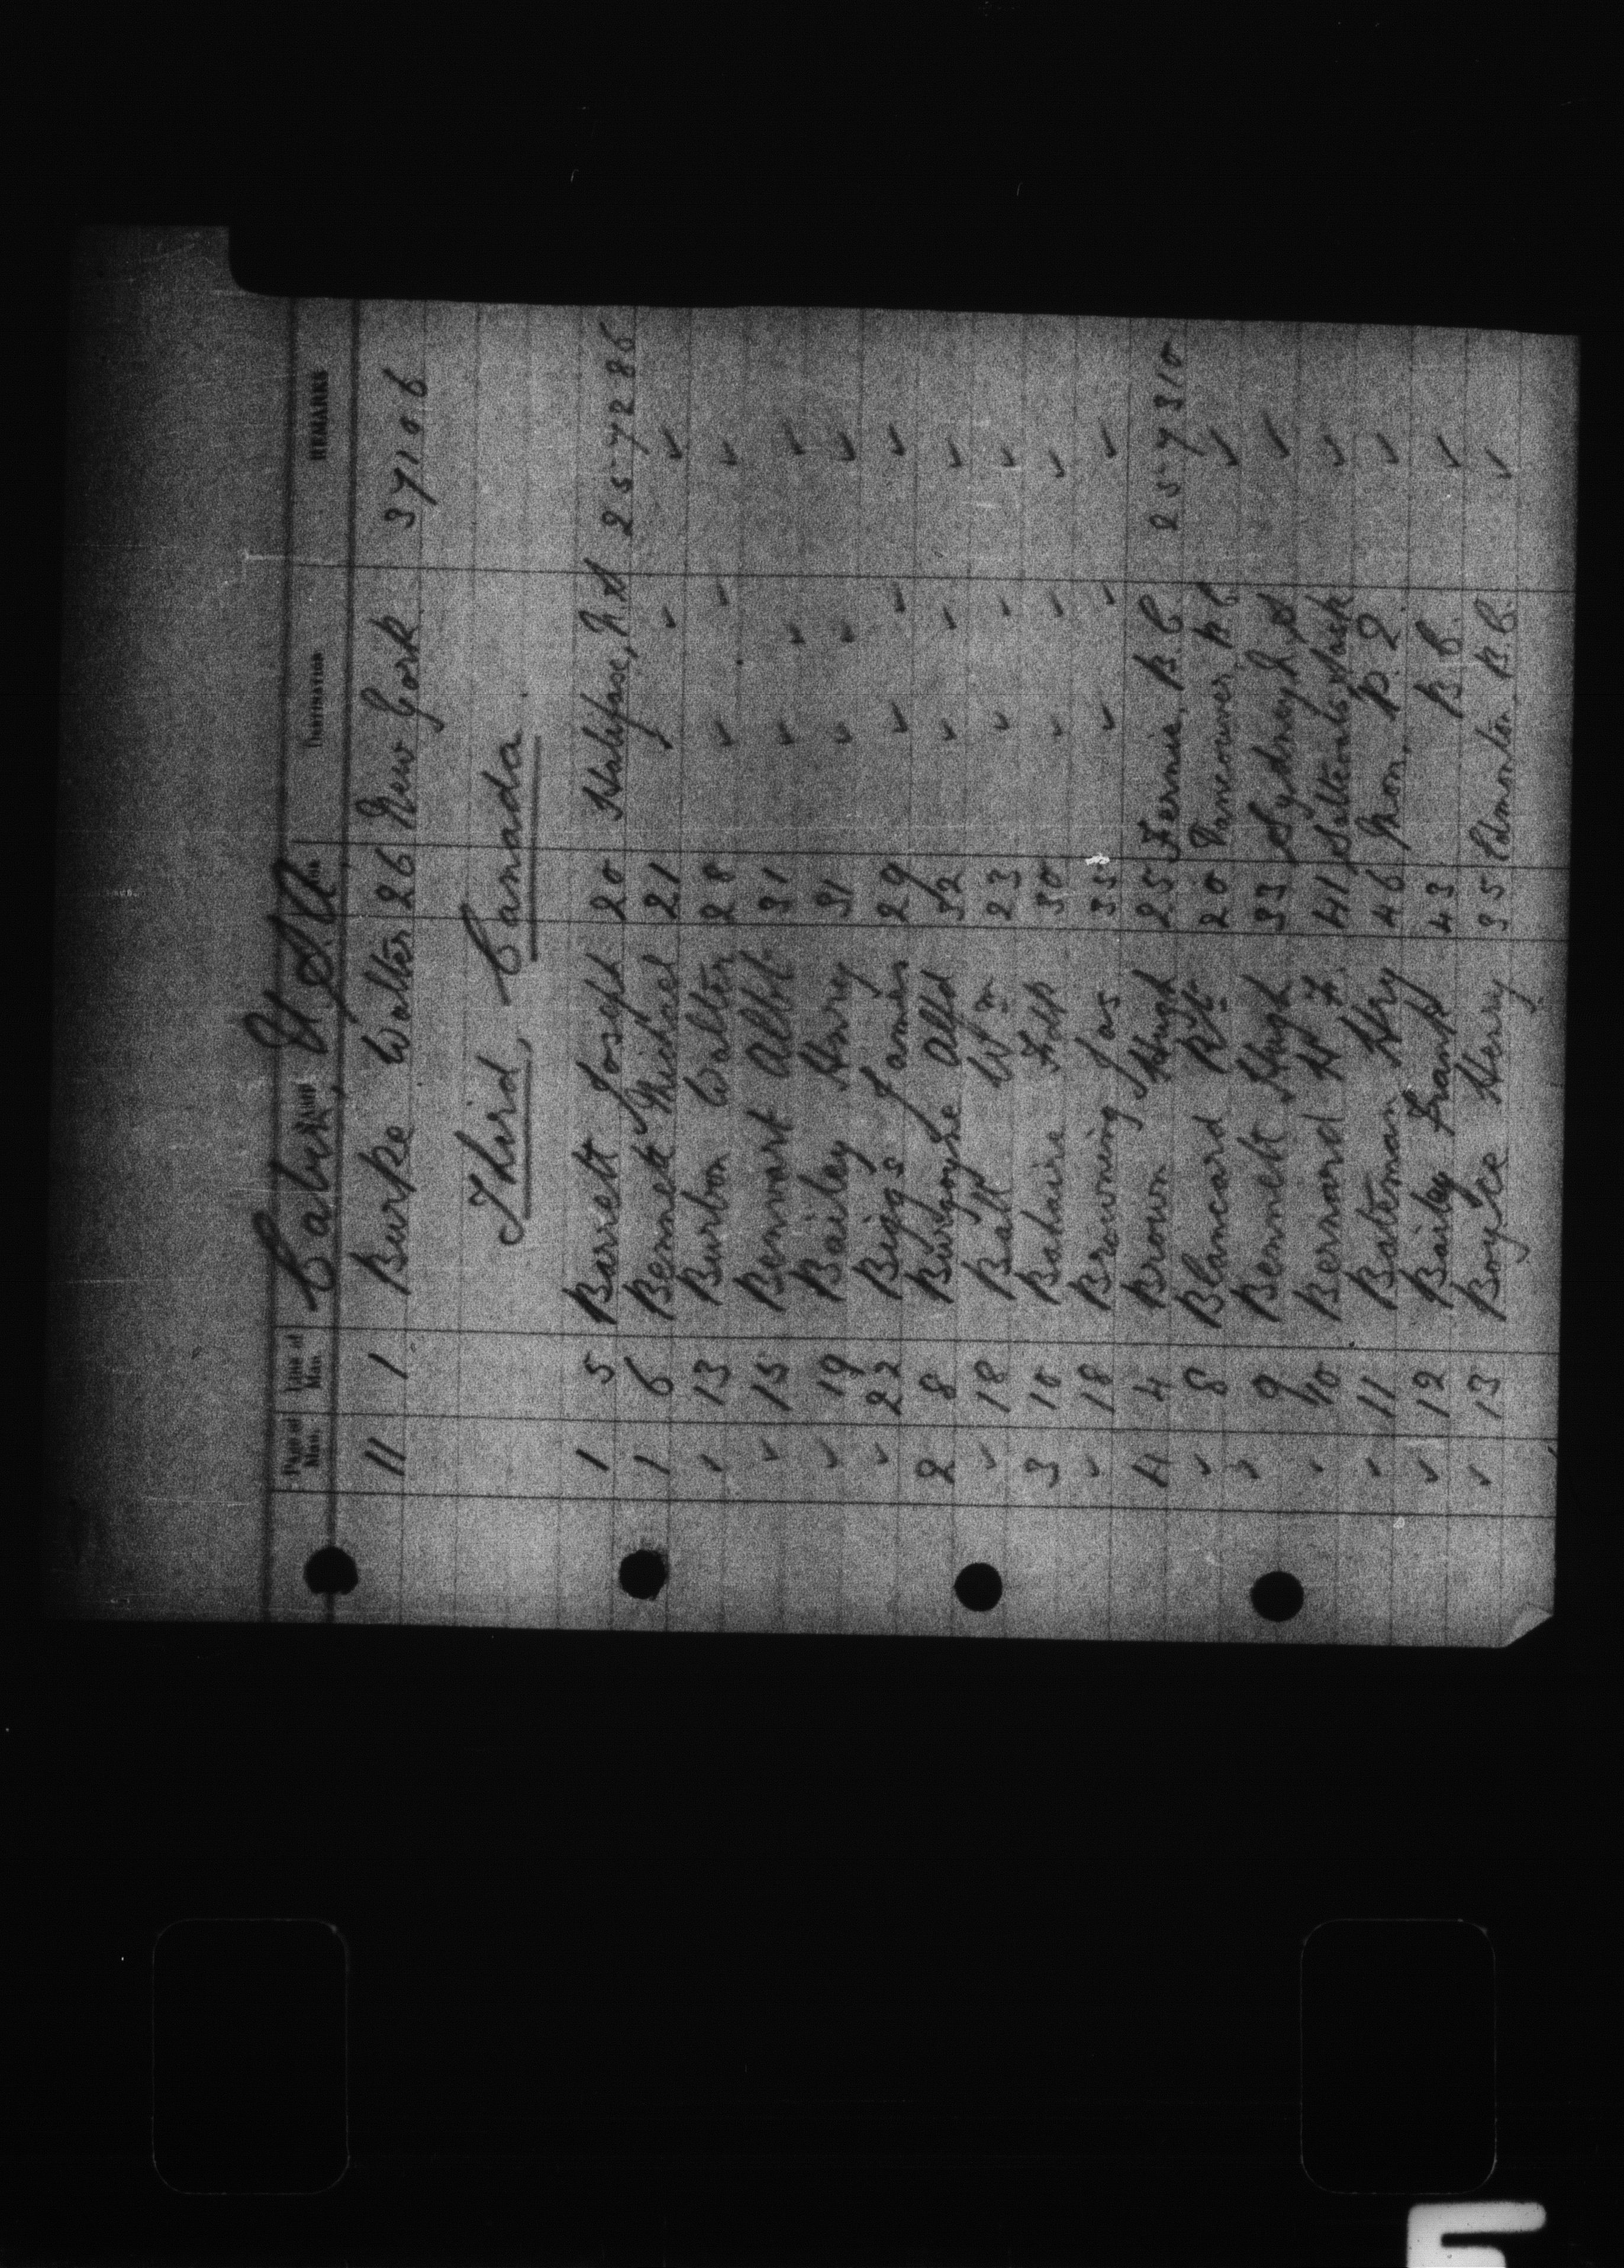 Cabin, U.S.A.
Page of Man. Line of Man. NAME Destination REMARKS
11 1 Burke Walter 26 New York 37106
Third, Canada
1 5 Barrett Joseph 20 Halifax, N.S 257286
1 6 Bennett Michael 21 ✓ ✓ ✓
✓ 13 Burton Walter 28 ✓ ✓ ✓
✓ 15 Albt 31 ✓ ✓ ✓
✓ 19 Bailey Henry 31 ✓ ✓ ✓
✓ 22 Biggs James 29 ✓ ✓ ✓
2 8 Burgoyne Alfd 32 ✓ ✓ ✓
✓ 18 Batt Wm 23 ✓ ✓ ✓
3 10 Bahaire 30 ✓ ✓ ✓
✓ 18 Browning Jas 35 ✓ ✓ ✓
4 4 Brown Hugh 25 Fernie, B.C 257310
✓ 8 Blancard Rbt 20 Vancouver, B.C ✓
✓ 9 Bennett Hugh 33 Sydney N.S ✓
✓ 10 Bernard H. F. 41 Saltcoats Sask ✓
✓ 11 Bateman Hry 46 Mon. P.Q ✓
✓ 12 Bailey Frank 43 B C. ✓
✓ 13 Boyce Henry 35 Edmonton, B.C. ✓